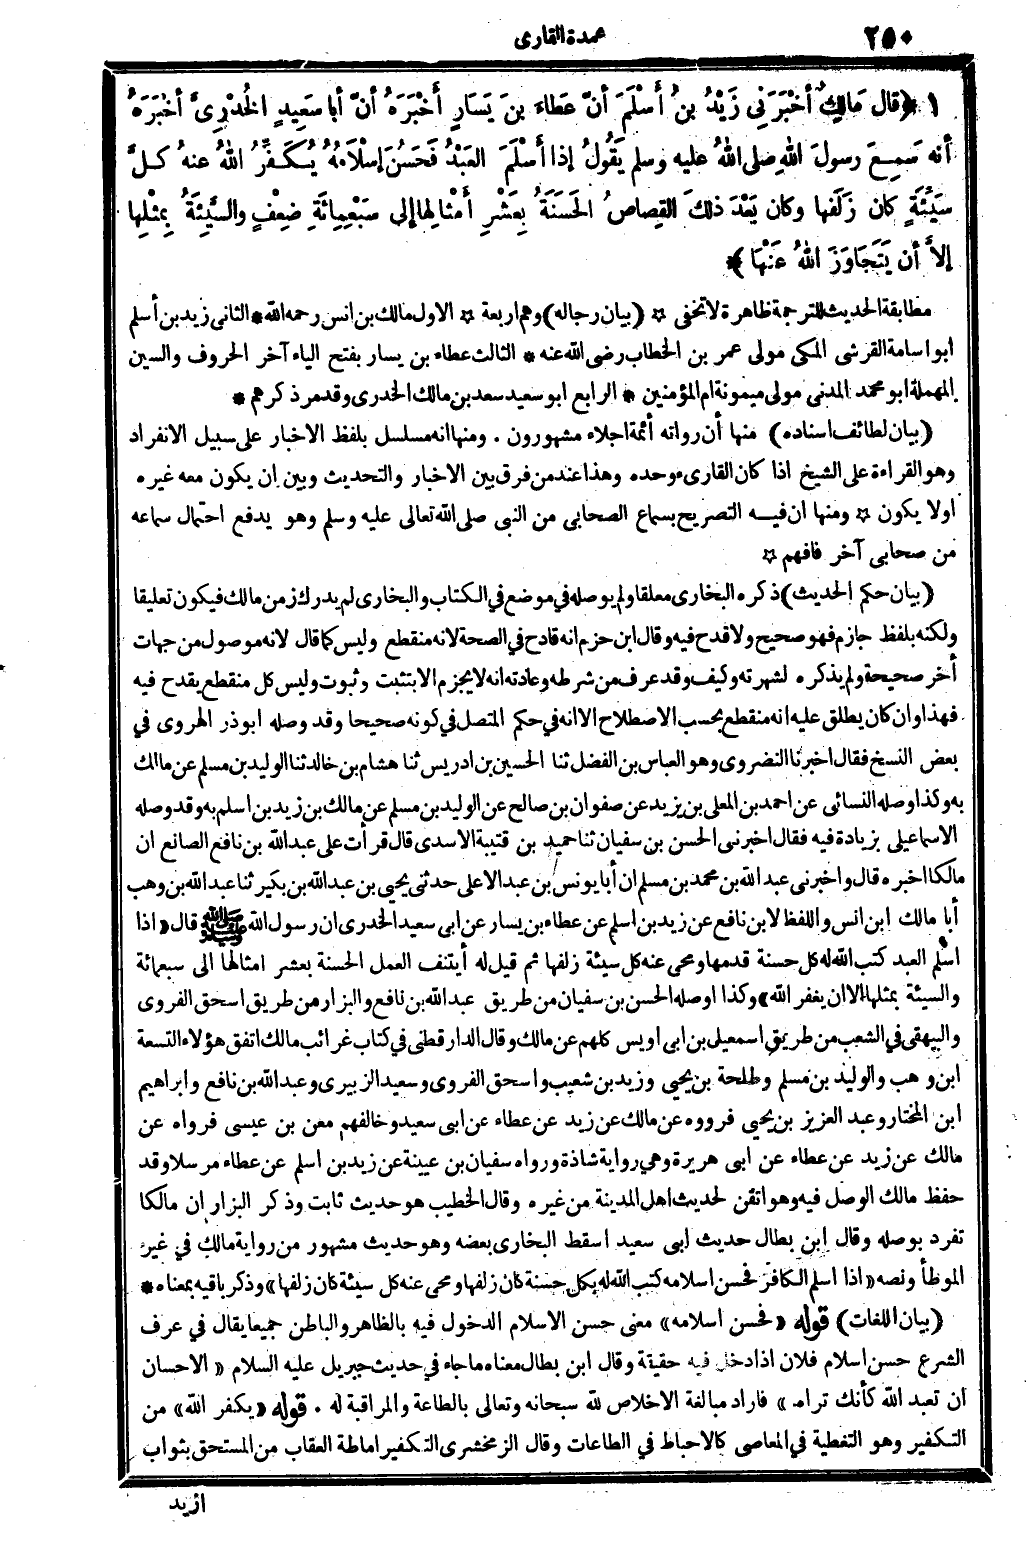 ٢٥٠
عمدة القارى
١ ﴿قال مَالِكٌ أخْبَرَنِى زَيْدُ بنُ أَسْلَمَ أنَّ عَطَاءَ بنَ يَسَارٍ أخْبَرَهُ أنَّ أبا سَعِيدٍ الخُدْرِىَّ أخْبَرَهُ
أنه سَمِعَ رسولَ اللهِ صلى اللهُ عليه وسلم يَقُولُ إذا أَسْلَمَ العَبْدُ فَحَسُنَ إسْلَامُهُ يُكَفِّرُ اللهُ عنهُ كلَّ
سَيِّئَةٍ كان زَلَفَها وكان بَعْدَ ذلكَ القِصاصُ الحَسَنَةُ بِعَشْرِ أمْثالِها إلى سَبْعِمِائَةِ ضِعْفٍ والسَّيِّئَةُ بِمثْلِها
إلاَّ أن يَتَجَاوَزَ اللهُ عَنْها ﴾*
مطابقة الحديث للترجمة ظاهرة لا تخفى ☆ (بيان رجاله) وهم اربعة ☆ الاول مالك بن انس رحمه الله * الثانى زيد بن أسلم
ابو اسامة القرشى المكى مولى عمر بن الخطاب رضى الله عنه * الثالث عطاء بن يسار بفتح الياء آخر الحروف والسين
المهملة ابو محمد المدنى مولى ميمونة ام المؤمنين * الرابع ابو سعيد سعد بن مالك الخدرى وقد مر ذكرهم *
(بيان لطائف اسناده) منها أن رواته أئمة اجلاء مشهورون . ومنها انه مسلسل بلفظ الاخبار على سبيل الانفراد
وهو القراءة على الشيخ اذا كان القارىء وحده وهذا عند من فرق بين الاخبار والتحديث وبين ان يكون معه غيره
اولا يكون ☆ ومنها ان فيه التصريح بسماع الصحابى من النبى صلى الله تعالى عليه وسلم وهو يدفع احتمال سماعه
من صحابى آخر فافهم ☆
(بيان حكم الحديث) ذكره البخارى معلقا ولم يوصله فى موضع فى الكتاب والبخارى لم يدرك زمن مالك فيكون تعليقا
ولكنه بلفظ جازم فهو صحيح ولا قدح فيه وقال ابن حزم انه قادح فى الصحة لانه منقطع وليس كما قال لانه موصول من جهات
أخر صحيحة ولم يذكره لشهرته وكيف وقد عرف من شرطه وعادته انه لا يجزم الا بتثبت وثبوت وليس كل منقطع يقدح فيه
فهذا وان كان يطلق عليه انه منقطع بحسب الاصطلاح الا انه فى حكم المتصل فى كونه صحيحا وقد وصله ابو ذر الهروى فى
بعض النسخ فقال اخبرنا النضروى وهو العباس بن الفضل ثنا الحسين بن ادريس ثنا هشام بن خالد ثنا الوليد بن مسلم عن مالك
به وكذا وصله النسائى عن احمد بن المعلى بن يزيد عن صفوان بن صالح عن الوليد بن مسلم عن مالك بن زيد بن اسلم به وقد وصله
الاسماعيلى بزيادة فيه فقال اخبرنى الحسن بن سفيان ثنا حميد بن قتيبة الاسدى قال قرأت على عبد الله بن نافع الصائع ان
مالكا اخبره قال واخبرنى عبد الله بن محمد بن مسلم ان أبا يونس بن عبد الاعلى حدثنى يحيى بن عبد الله بن بكير ثنا عبد الله بن وهب
أبا مالك ابن انس واللفظ لابن نافع عن زيد بن اسلم عن عطاء بن يسار عن ابى سعيد الخدرى ان رسول الله ﷺ قال «اذا
اسلم العبد كتب الله له كل حسنة قدمها ومحى عنه كل سيئة زلفها ثم قيل له أيتنف العمل الحسنة بعشر امثالها الى سبعمائة
والسيئة بمثلها الا ان يغفر الله» وكذا اوصله الحسن بن سفيان من طريق عبد الله بن نافع والبزار من طريق اسحق الفروى
والبيهقى فى الشعب من طريق اسمعيل بن ابى اويس كلهم عن مالك وقال الدارقطنى فى كتاب غرائب مالك اتفق هؤلاء التسعة
ابن وهب والوليد بن مسلم وطلحة بن يحيى وزيد بن شعيب واسحق الفروى وسعيد الزبيرى وعبد الله بن نافع وابراهيم
ابن المختار وعبد العزيز بن يحيى فرووه عن مالك عن زيد عن عطاء عن ابى سعيد وخالفهم معن بن عيسى فرواه عن
مالك عن زيد عن عطاء عن ابى هريرة وهى رواية شاذة ورواه سفيان بن عيينة عن زيد بن اسلم عن عطاء مرسلا وقد
حفظ مالك الوصل فيه وهو اتقن لحديث اهل المدينة من غيره وقال الخطيب هو حديث ثابت وذكر البزار ان مالكا
تفرد بوصله وقال ابن بطال حديث ابى سعيد اسقط البخارى بعضه وهو حديث مشهور من رواية مالك فى غير
الموطأ ونصه «اذا اسلم الكافر فحسن اسلامه كتب الله له بكل حسنة كان زلفها ومحى عنه كل سيئة كان زلفها» وذكر باقيه بمعناه *
(بيان اللغات) قوله «فحسن اسلامه» معنى حسن الاسلام الدخول فيه بالظاهر والباطن جميعا يقال فى عرف
الشرع حسن اسلام فلان اذا دخل فيه حقيقة وقال ابن بطال معناه ما جاء فى حديث جبريل عليه السلام «الاحسان
ان تعبد الله كأنك تراه» فاراد مبالغة الاخلاص لله سبحانه وتعالى بالطاعة والمراقبة له . قوله «يكفر الله» من
التكفير وهو التغطية فى المعاصى كالاحباط فى الطاعات وقال الزمخشرى التكفير اماطة العقاب من المستحق بثواب
ازيد